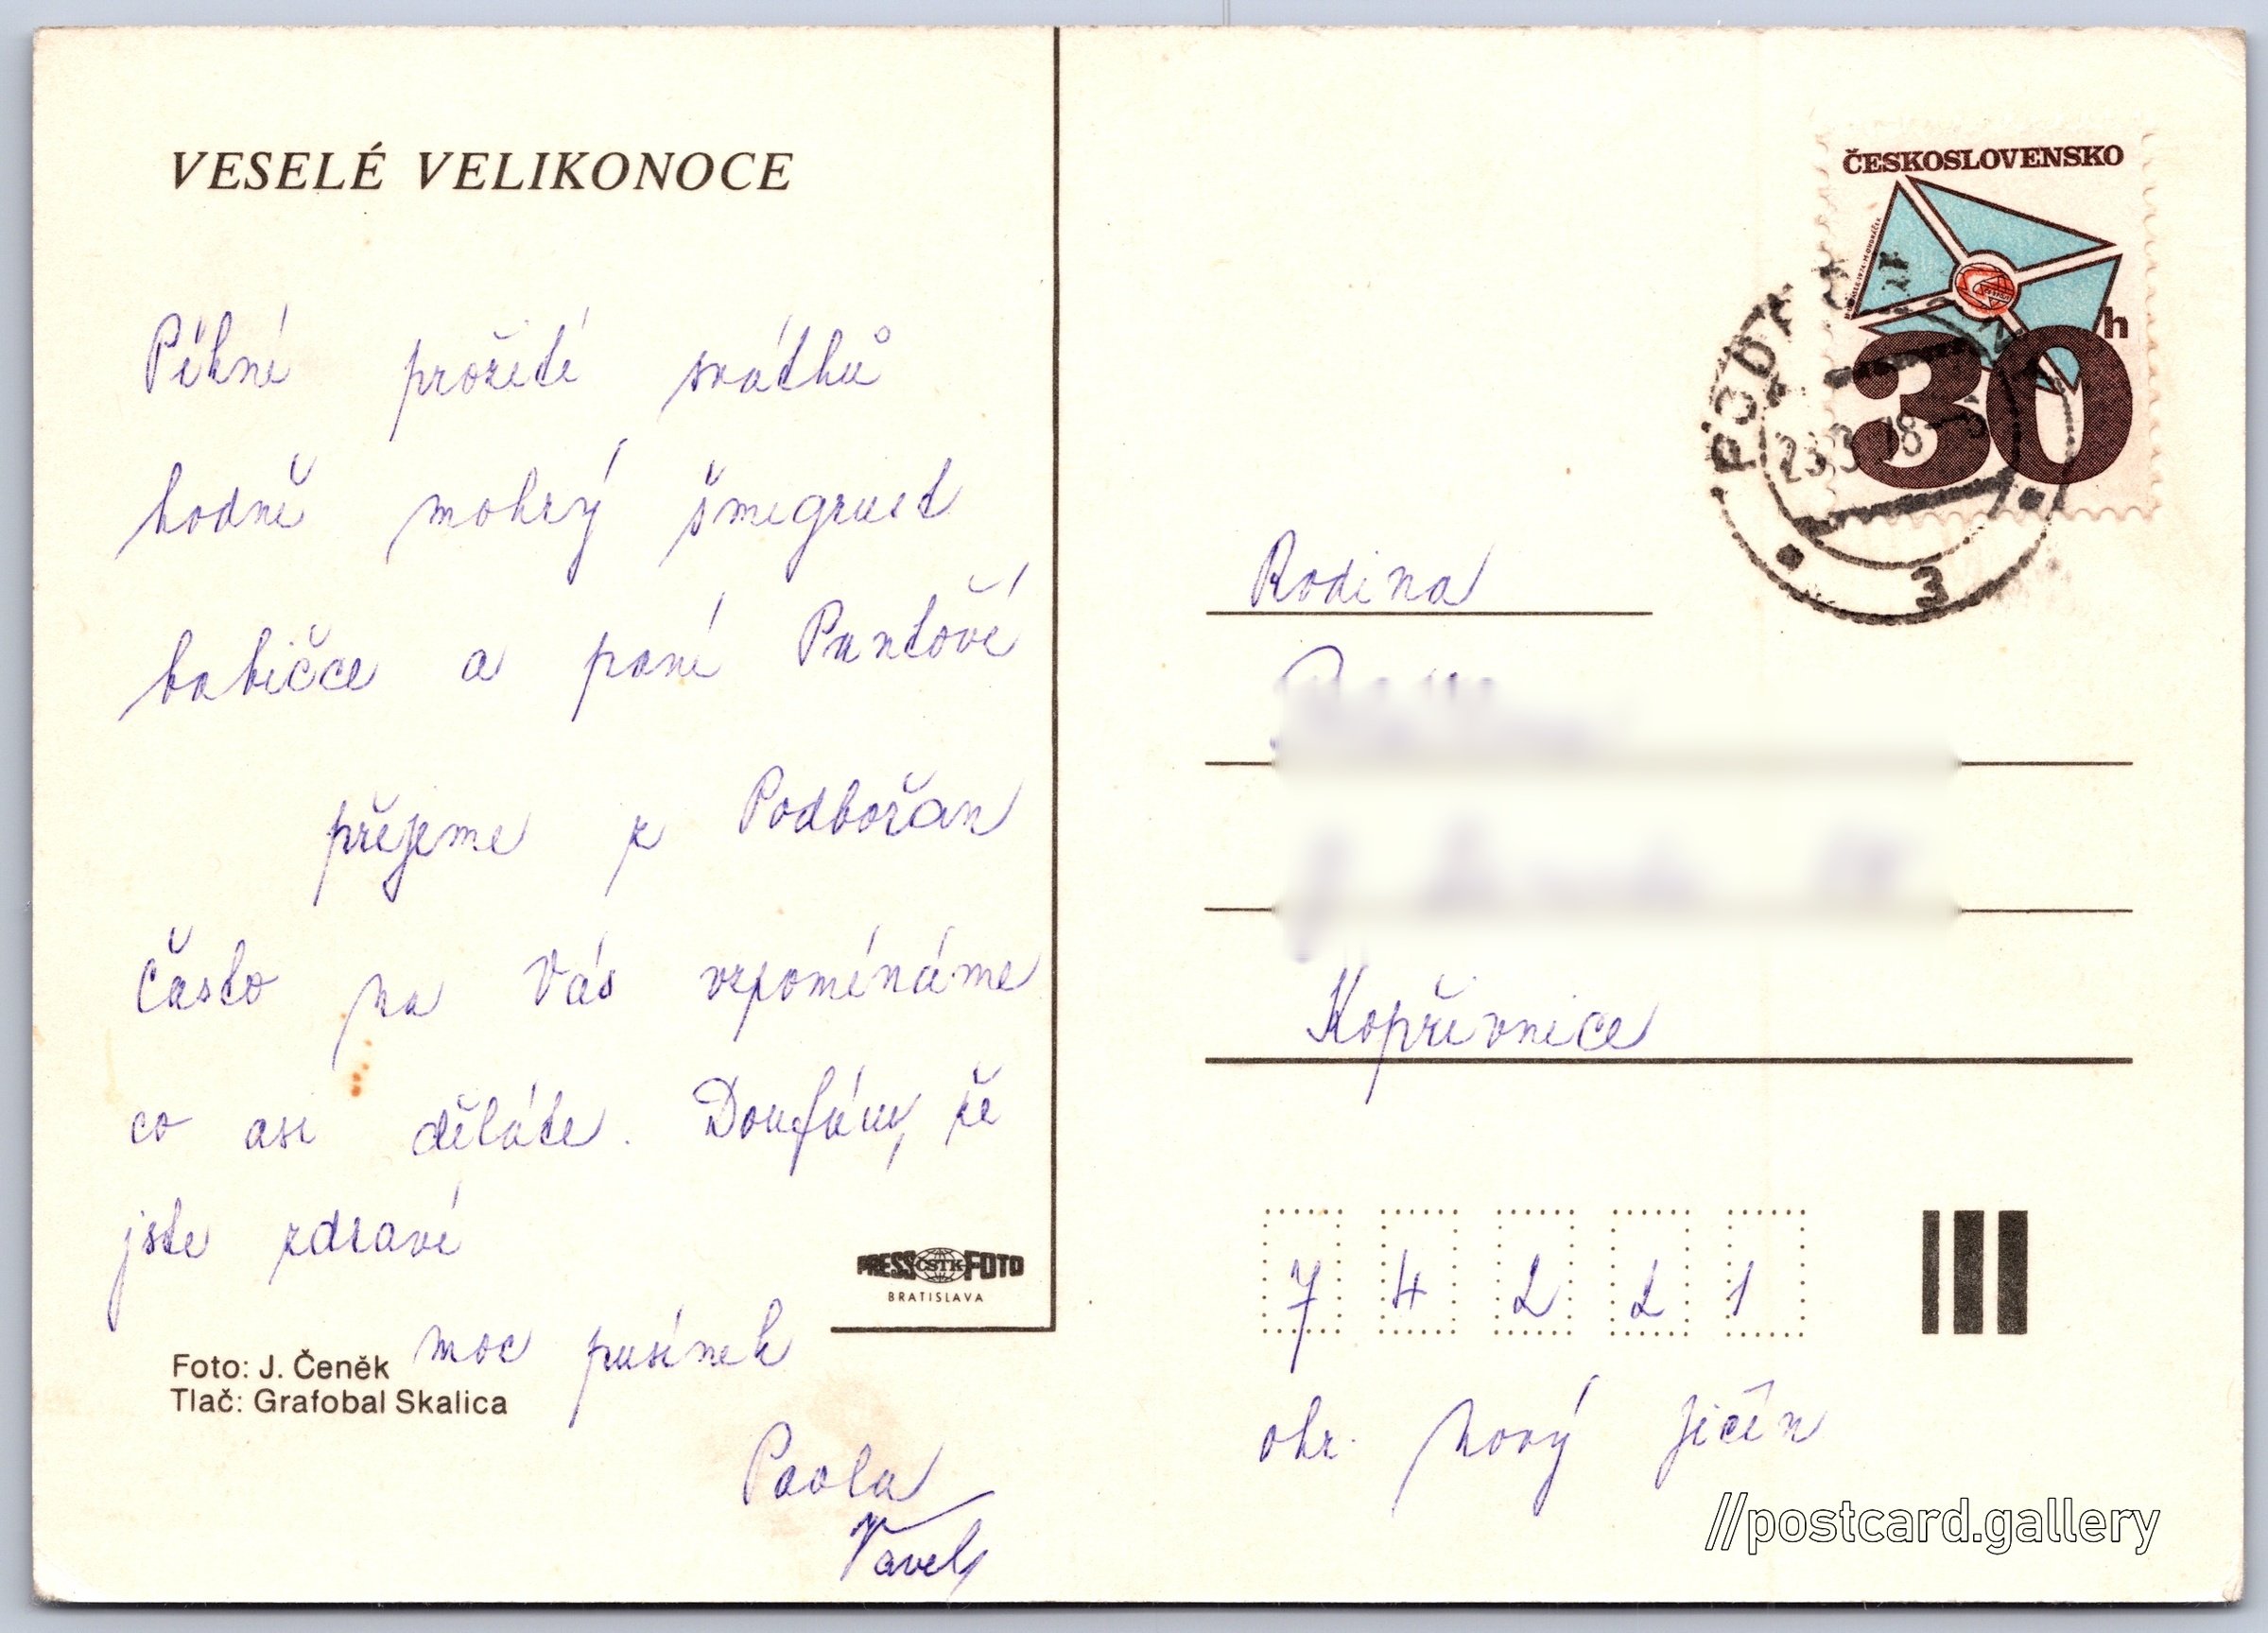 VESELÉ VELIKONOCE
Pěkné prožití svátků
hodně mokrý šmegrust
babičce a paní Puntové
přejeme z Podbořan
často na Vás vzpomínáme
co asi děláte. Doufám, že
jste zdraví
moc pusinek
Paola
Pavel
PRESS ČSTK FOTO
BRATISLAVA
Foto: J. Čeněk
Tlač: Grafobal Skalica
ČESKOSLOVENSKO
30 h
3
Rodina
Kopřivnice
7 4 2 2 1
okr. Nový Jičín
//postcard.gallery